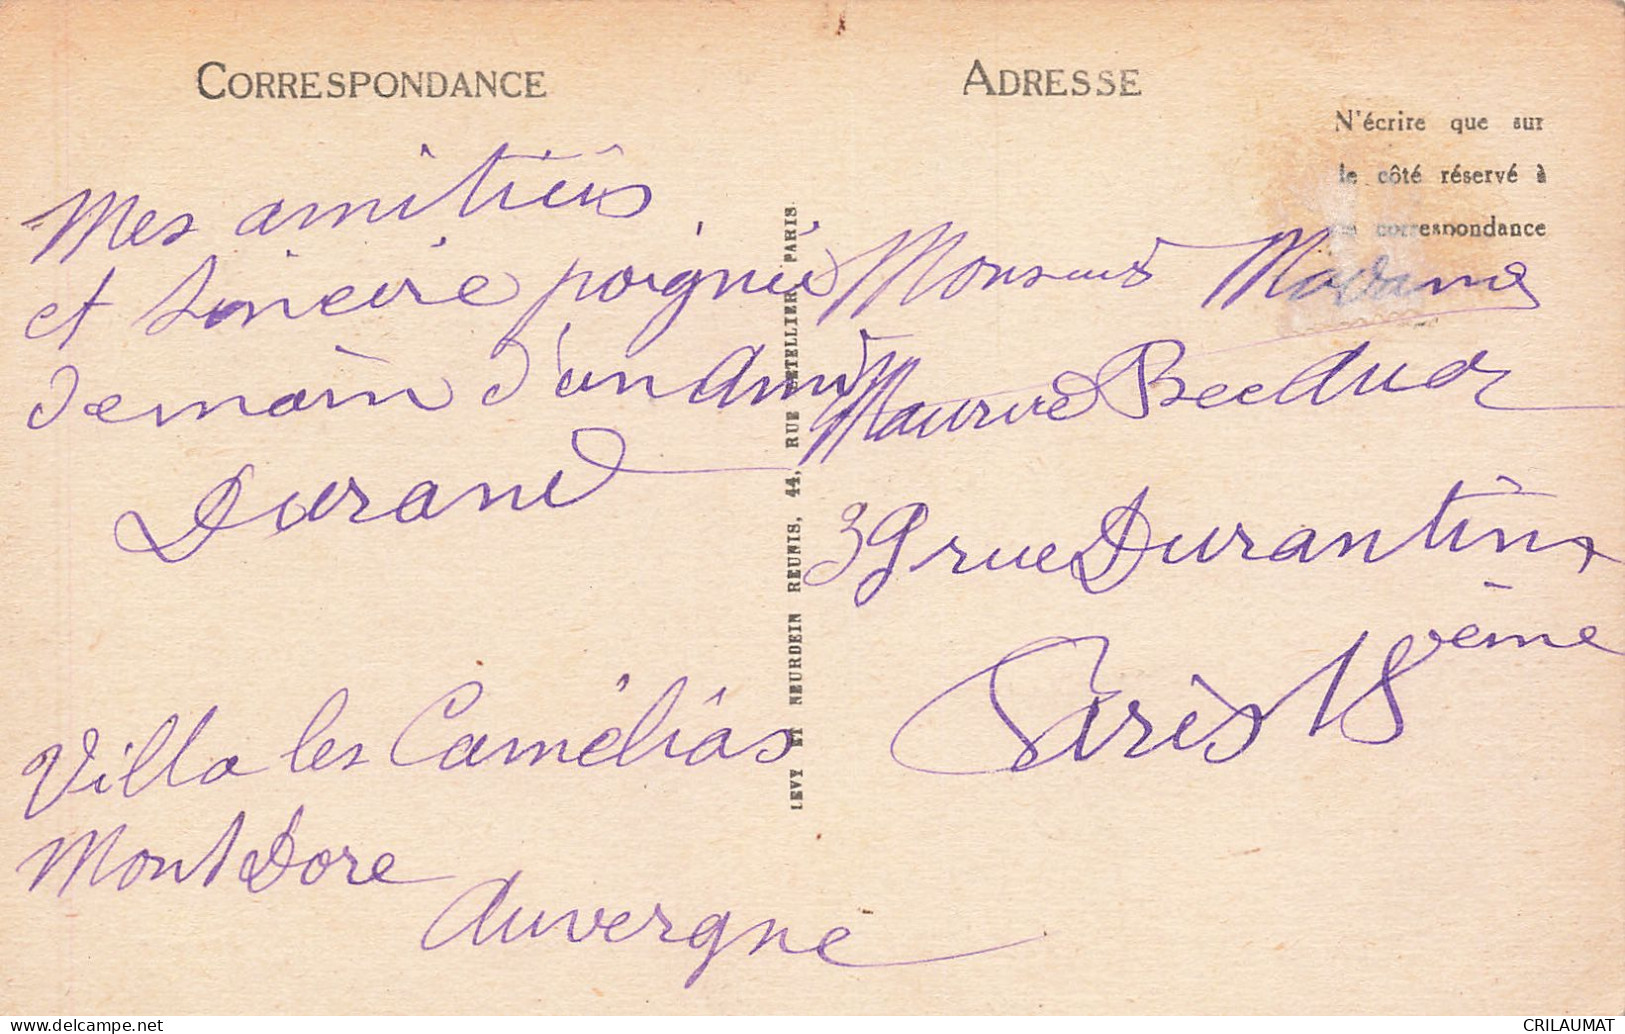 CORRESPONDANCE
Mes amitiés
et sincère poignée
de main d'un Ami
Durand
Villa les Camélias
Mont Dore
Auvergne
LEVY ET NEURDEIN REUNIS, 44, RUE LETELLIER, PARIS
ADRESSE
N'écrire que sur
le côté réservé à
la correspondance
Monsieur Madame
Maurice
39 rue Durantin
Paris 18ème
www.delcampe.net
CRILAUMAT